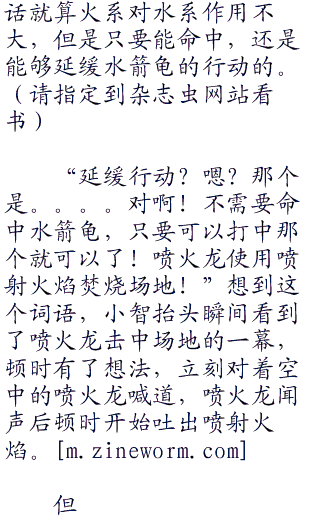 话就算火系对水系作用不
大，但是只要能命中，还是
能够延缓水箭龟的行动的。
（请指定到杂志虫网站看
书）
“延缓行动？嗯？那个
是。。。。对啊！不需要命
中水箭龟，只要可以打中那
个就可以了！喷火龙使用喷
射火焰焚烧场地！”想到这
个词语，小智抬头瞬间看到
了喷火龙击中场地的一幕，
顿时有了想法，立刻对着空
中的喷火龙喊道，喷火龙闻
声后顿时开始吐出喷射火
焰。[m.zineworm.com]
但